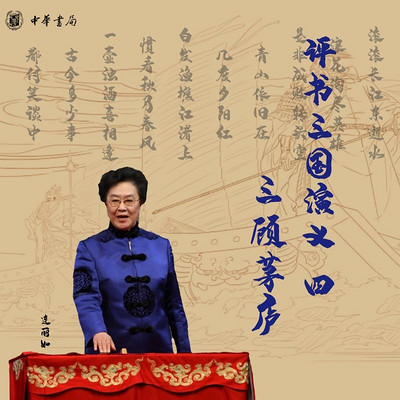 中華書局
滚滚长江东逝水
浪花淘尽英雄
是非成败转头空
青山依旧在
几度夕阳红
白发渔樵江渚上
惯看秋月春风
一壶浊酒喜相逢
古今多少事
都付笑谈中
评书三国演义 四
三顾茅庐
连丽如